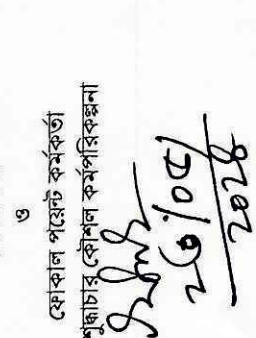 ও
ফোকাল পয়েন্ট কর্মকর্তা
শুদ্ধাচার কৌশল কর্মপরিকল্পনা
২৬/০৫/
২০২৪